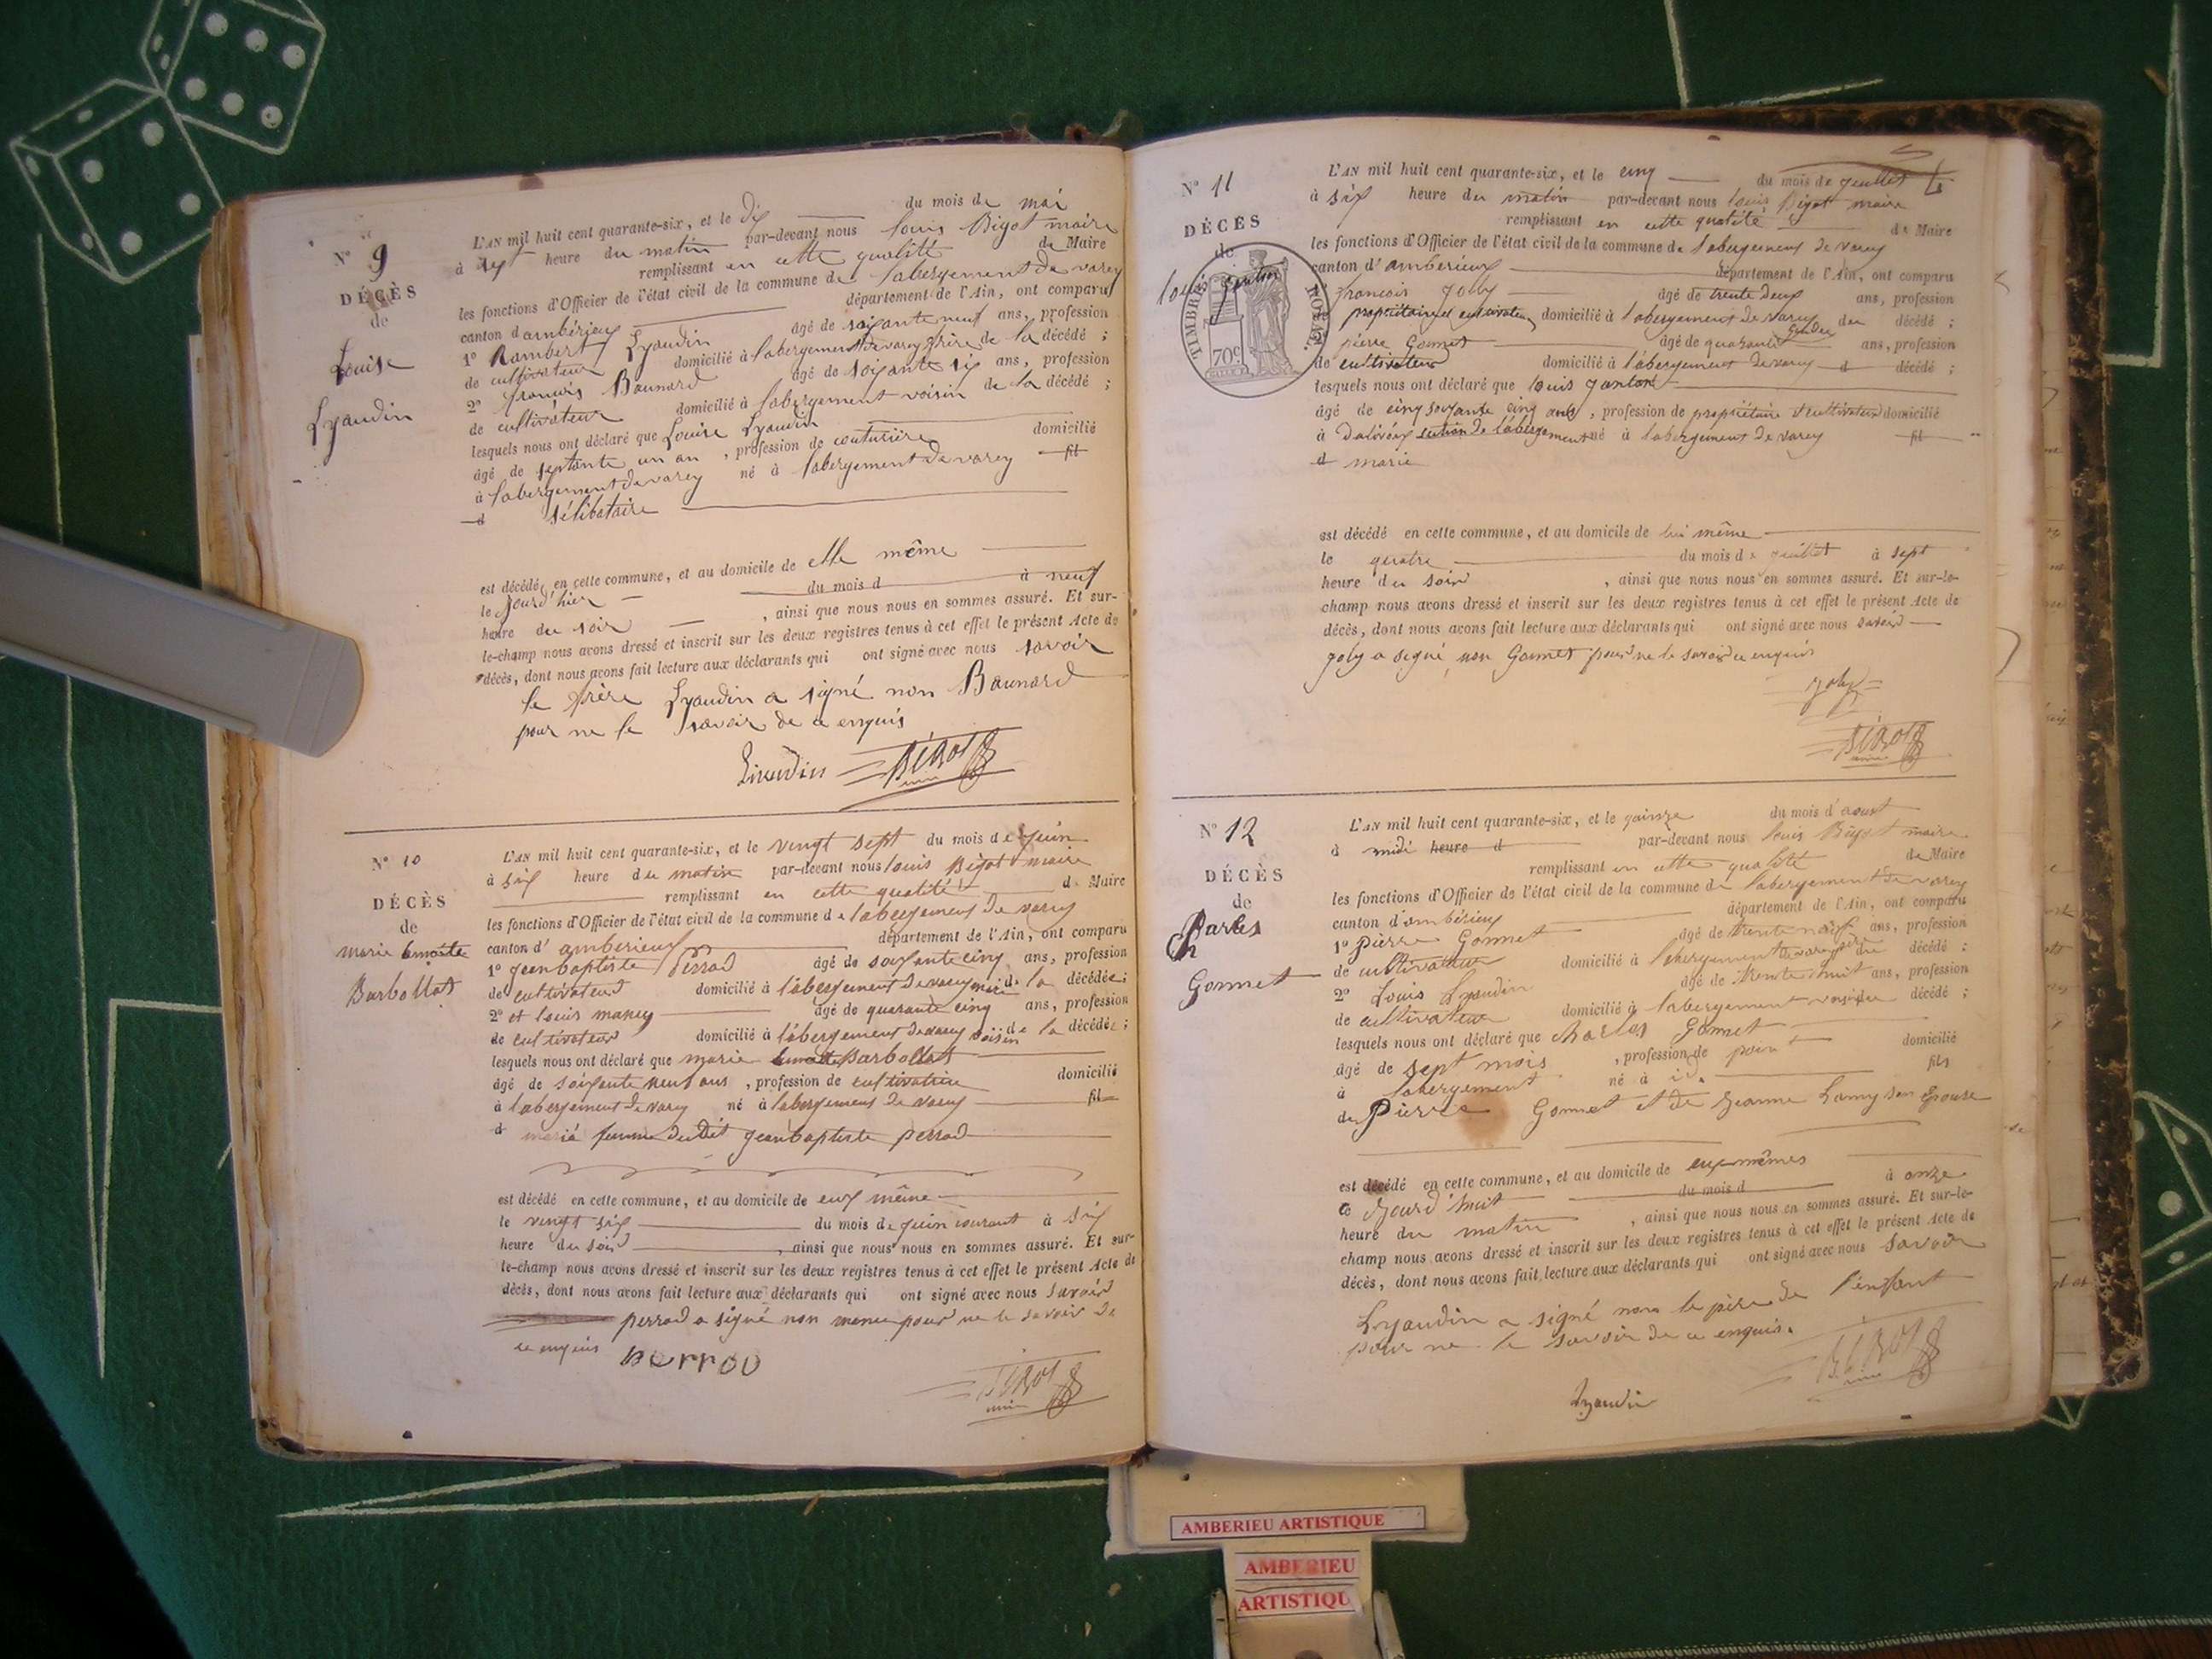 N° 9
DÉCÈS
de
Louise
Lyaudin
L'AN mil huit cent quarante-six, et le dix du mois de mai
à sept heure du matin par-devant nous louis Bigot maire
remplissant en cette qualité de Maire
les fonctions d'Officier de l'état civil de la commune de labergement de varey
canton d'ambérieux département de l'Ain, ont comparu
1° Rambert Lyaudin âgé de soixante neuf ans, profession
de cultivateur domicilié à labergement de varey frère de la décédé ;
2° françois Baunard âgé de soixante six ans, profession
de cultivateur domicilié à labergement voisin de la décédé ;
lesquels nous ont déclaré que Louise Lyaudin
âgé de septante un an , profession de couturière domicilié
à labergement de varey né à labergement de varey fil
d sélibataire
est décédé en cette commune, et au domicile de elle même
le jourd'hier du mois d à neuf
heure du soir , ainsi que nous nous en sommes assuré. Et sur-
le-champ nous avons dressé et inscrit sur les deux registres tenus à cet effet le présent Acte de
décès, dont nous avons fait lecture aux déclarants qui ont signé avec nous savoir
le frère Lyaudin a signé non Baunard
pour ne le savoir de ce enquis
Liaudin BIGOT
N° 10
DÉCÈS
de
marie
Barbollat
L'AN mil huit cent quarante-six, et le vingt sept du mois de juin
à six heure du matin par-devant nous louis Bigot maire
remplissant en cette qualité de Maire
les fonctions d'Officier de l'état civil de la commune de labergement de varey
canton d' amberieux département de l'Ain, ont comparu
1° jean baptiste Perrod âgé de soixante cinq ans, profession
de cultivateur domicilié à labergement de varey mari de la décédée ;
2° et louis maney âgé de quarante cinq ans, profession
de cultivateur domicilié à labergement de varey voisin de la décédée ;
lesquels nous ont déclaré que marie Barbollat
âgé de soixante neuf ans , profession de cultivatrice domicilié
à labergement de varey né à labergement de varey fil
d marié femme dudit jean baptiste perrod
est décédé en cette commune, et au domicile de eux même
le vingt six du mois de juin courant à six
heure du soir , ainsi que nous nous en sommes assuré. Et sur-
le-champ nous avons dressé et inscrit sur les deux registres tenus à cet effet le présent Acte de
décès, dont nous avons fait lecture aux déclarants qui ont signé avec nous savoir
perrod a signé non maney pour ne le savoir de
ce enquis perrod
BIGOT
N° 11
DÉCÈS
de
louis ganton
TIMBRE ROYAL
70c
L'AN mil huit cent quarante-six, et le cinq du mois de juillet
à six heure du matin par-devant nous louis Bigot maire
remplissant en cette qualité de Maire
les fonctions d'Officier de l'état civil de la commune de labergement de varey
canton d' amberieux département de l'Ain, ont comparu
francois joly âgé de trente deux ans, profession
propriétaire et cultivateur domicilié à labergement de varey gendre du décédé ;
pierre Gonnet âgé de quarante ans, profession
de cultivateur domicilié à labergement de varey d décédé ;
lesquels nous ont déclaré que louis ganton
âgé de cinq soixante cinq ans , profession de propriétaire et cultivateur domicilié
à section de labergement né à labergement de varey fil
d marié
est décédé en cette commune, et au domicile de lui même
le quatre du mois de juillet à sept
heure du soir , ainsi que nous nous en sommes assuré. Et sur-le-
champ nous avons dressé et inscrit sur les deux registres tenus à cet effet le présent Acte de
décès, dont nous avons fait lecture aux déclarants qui ont signé avec nous savoir
joly a signé non Gonnet pour ne le savoir ce enquis
joly
BIGOT
N° 12
DÉCÈS
de
Charles
Gonnet
L'AN mil huit cent quarante-six, et le quinze du mois d'aout
à midi heure d par-devant nous louis Bigot maire
remplissant en cette qualité de Maire
les fonctions d'Officier de l'état civil de la commune de labergement de varey
canton d'ambérieux département de l'Ain, ont comparu
1° pierre Gonnet âgé de trente neuf ans, profession
de cultivateur domicilié à labergement de varey père du décédé ;
2° Louis Lyaudin âgé de trente huit ans, profession
de cultivateur domicilié à labergement voisin du décédé ;
lesquels nous ont déclaré que charles Gonnet
âgé de sept mois , profession de point domicilié
à labergement né à id. fils
de pierre Gonnet et de jeanne Lamy son épouse
est décédé en cette commune, et au domicile de eux mêmes
le jourd'huit du mois d à onze
heure du matin , ainsi que nous nous en sommes assuré. Et sur-le-
champ nous avons dressé et inscrit sur les deux registres tenus à cet effet le présent Acte de
décès, dont nous avons fait lecture aux déclarants qui ont signé avec nous savoir
Lyaudin a signé non le père de l'enfant
pour ne le savoir de ce enquis.
BIGOT
Lyaudin
AMBERIEU ARTISTIQUE
AMBERIEU
ARTISTIQU